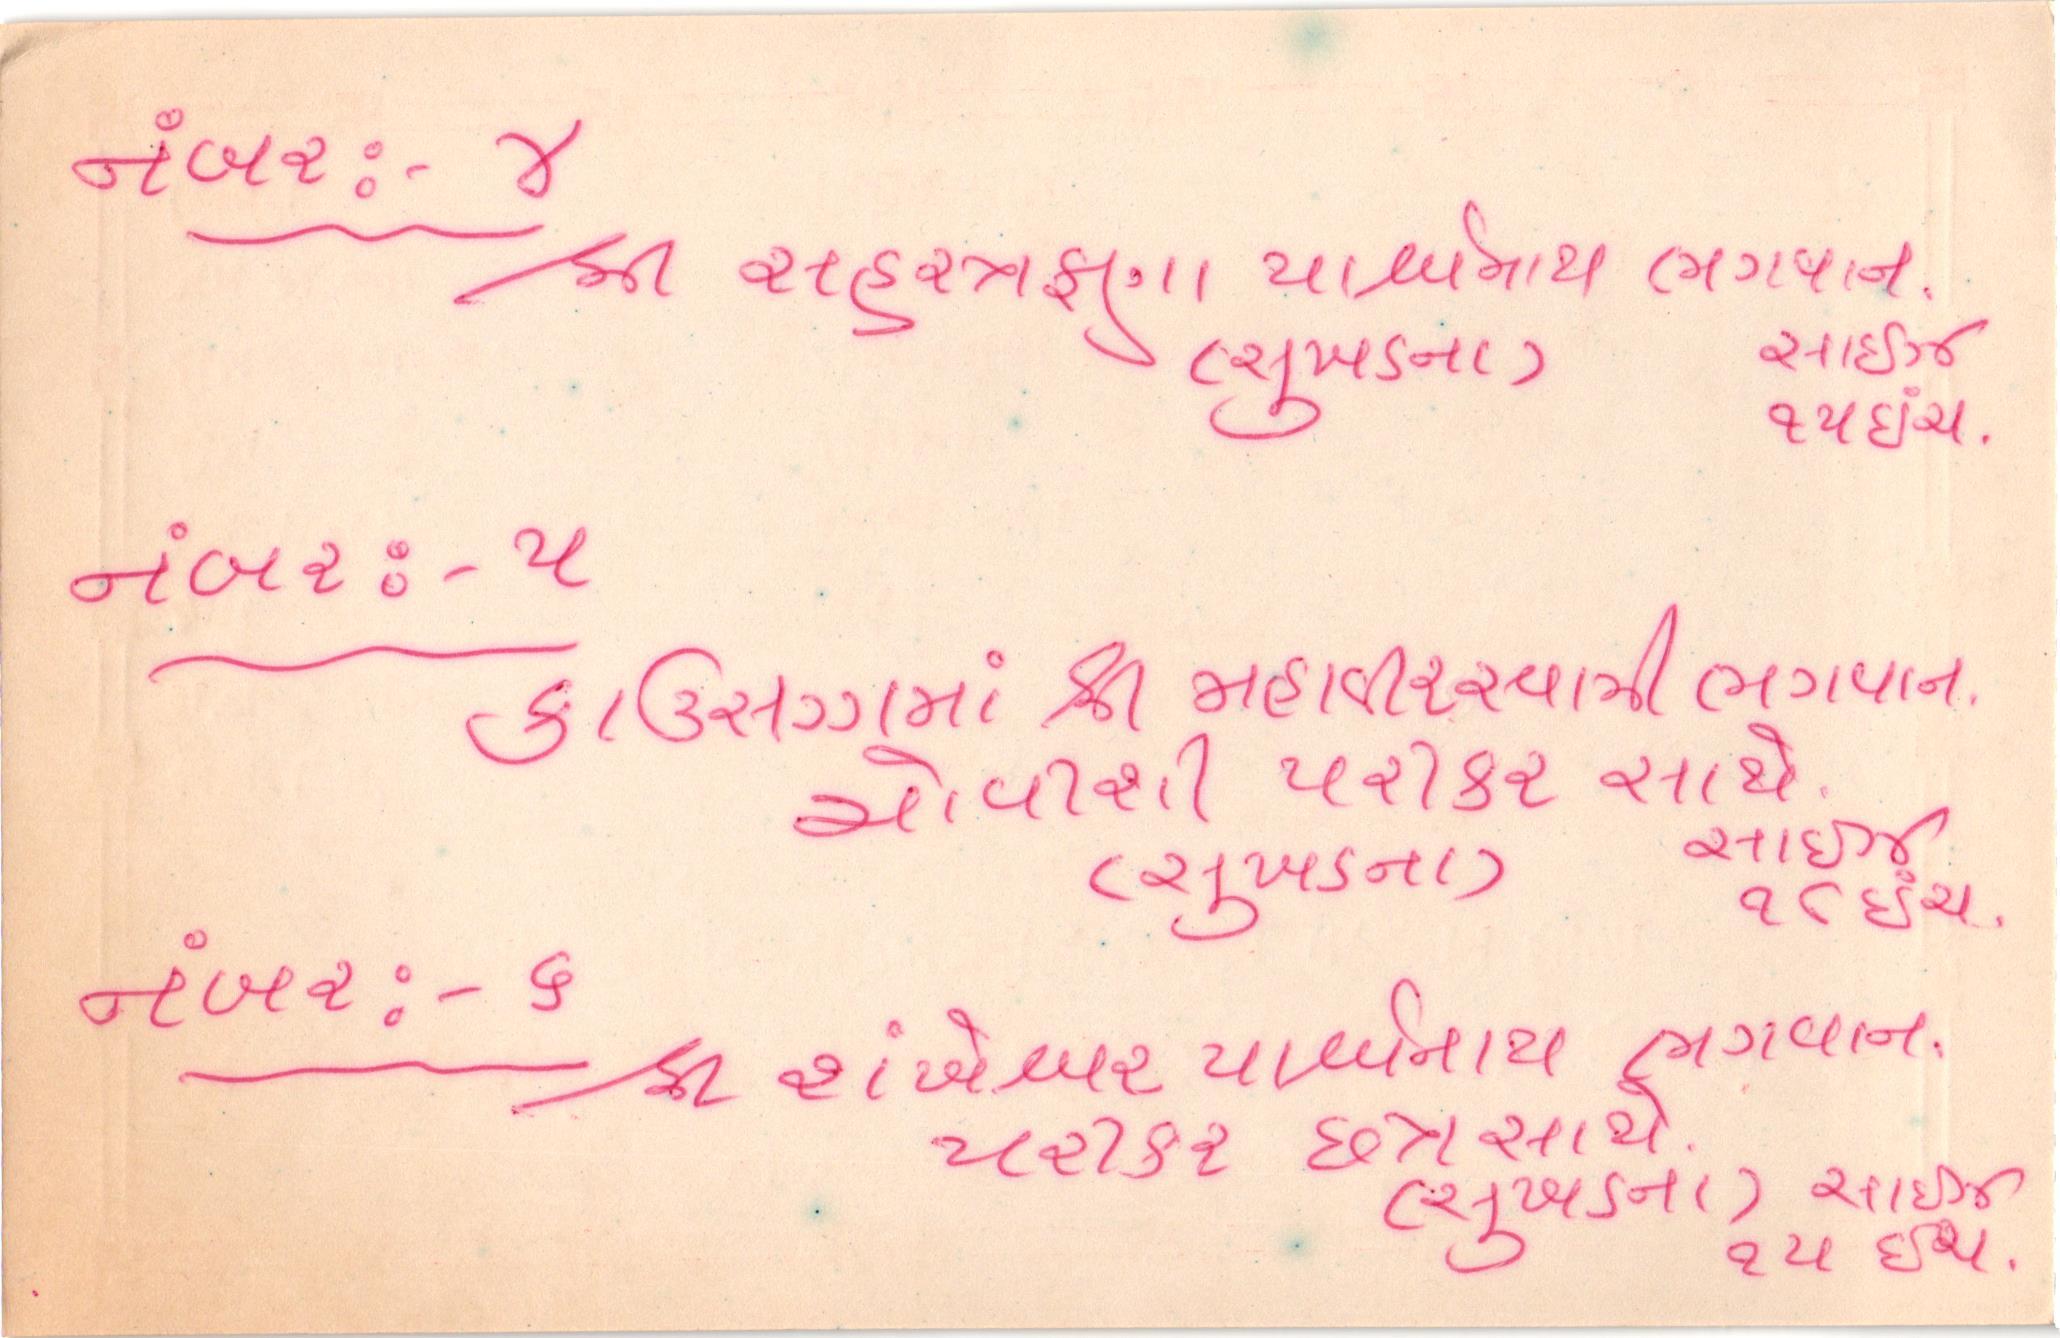 નંબર:- ૪
શ્રી સહસ્ત્રફણા પાર્શ્વનાથ ભગવાન.
(સુખડના) સાઈઝ
૧૫ ઇંચ.
નંબર:- ૫
કાઉસગ્ગમાં શ્રી મહાવીરસ્વામી ભગવાન.
ચોવીશી પરીકર સાથે.
(સુખડના) સાઈઝ
૧૮ ઇંચ.
નંબર:- ૬
શ્રી શંખેશ્વર પાર્શ્વનાથ ભગવાન.
પરીકર છત્ર સાથે.
(સુખડના) સાઈઝ
૧૫ ઇંચ.